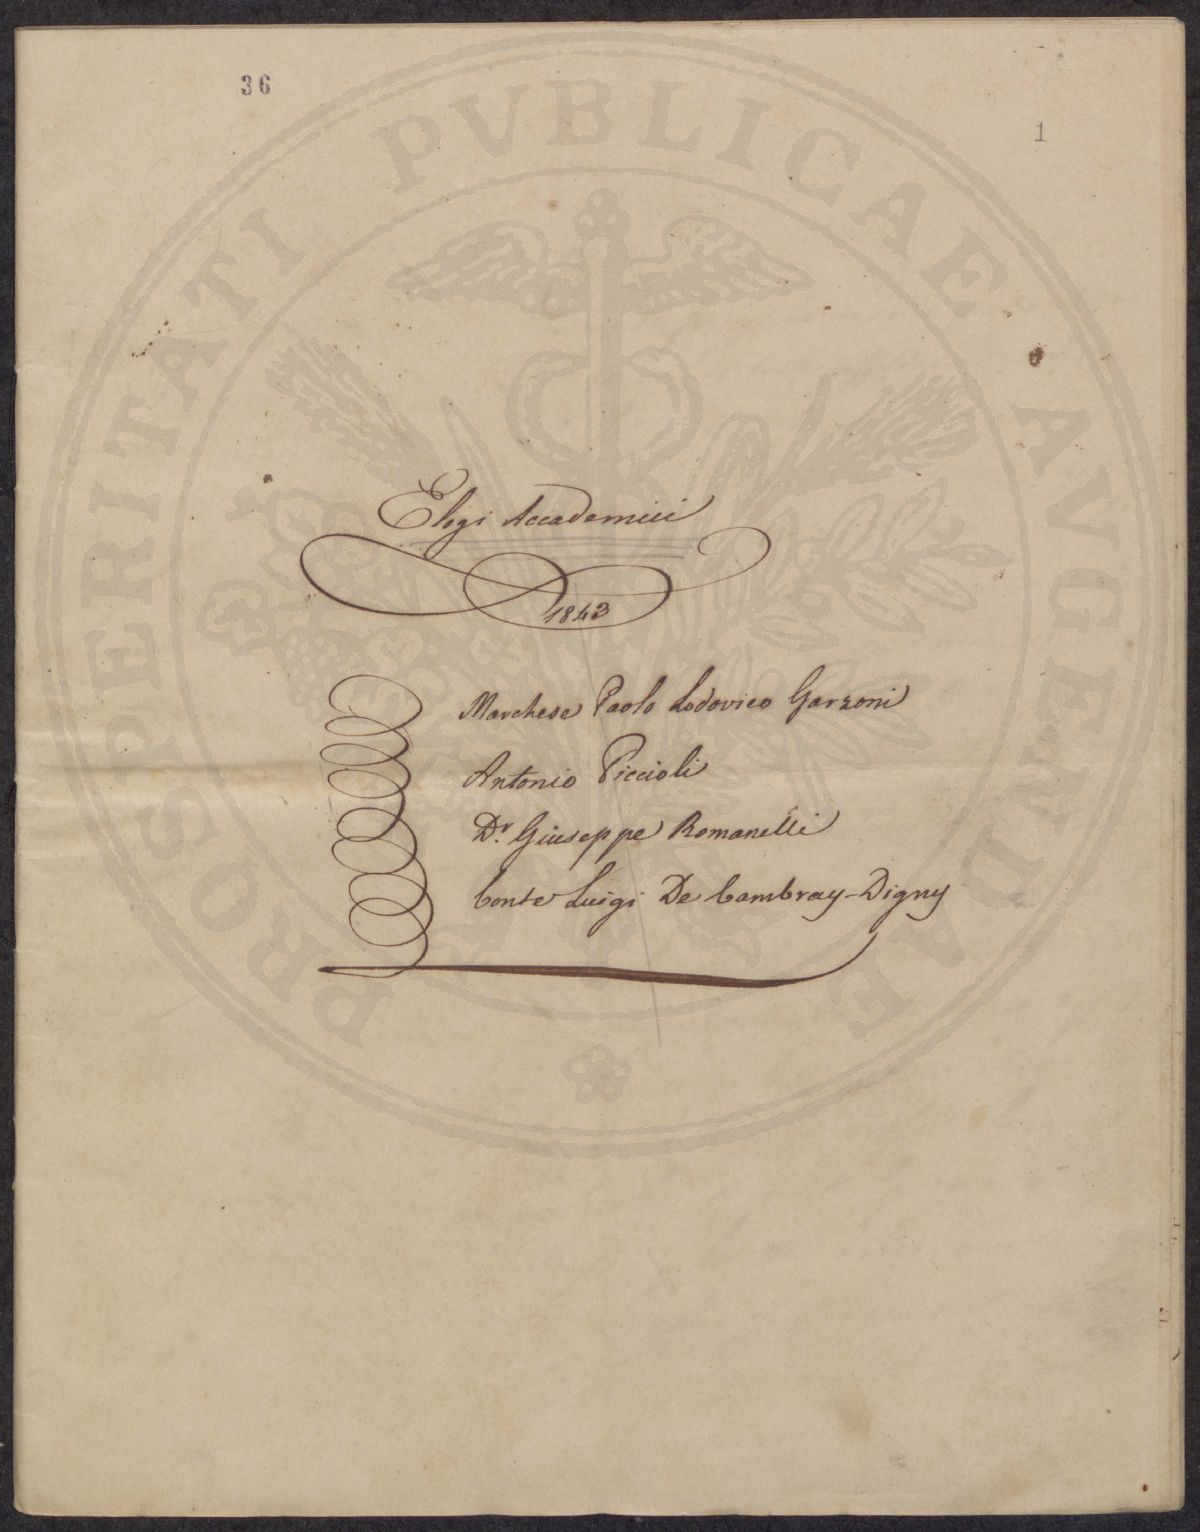 36
1
Elogi Accademici
1843
Marchese Paolo Lodovico Garzoni
Antonio Piccioli
Dr. Giuseppe Romanelli
Conte Luigi De Cambray-Digny
PROSPERITATI PVBLICAE AVGENDAE